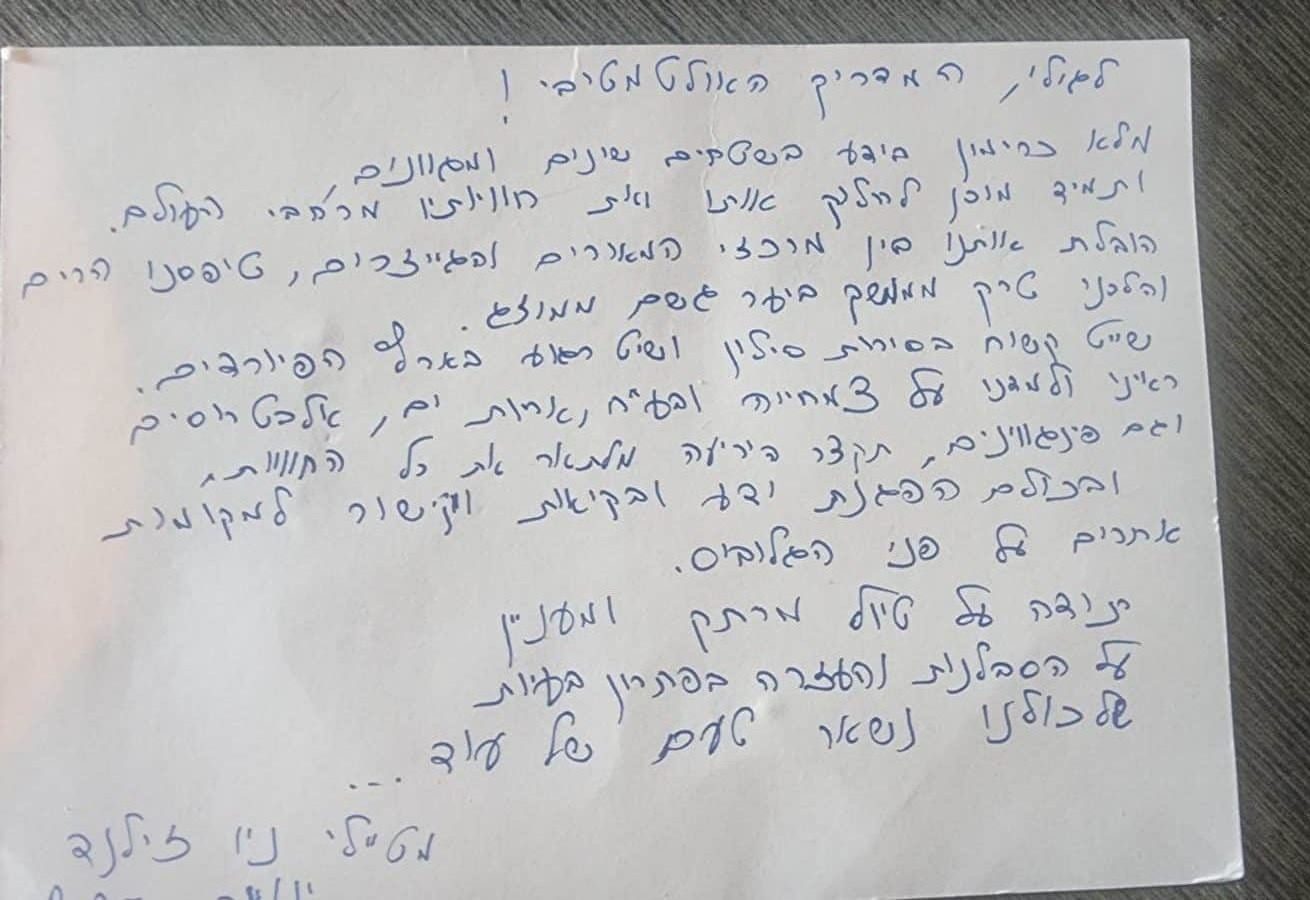 לגולי, המדריך האולטמטיבי !
מלא כרימון בידע בשטחים שינים ומגוונים,
ותמיד מוכן לחלוק אותו ואת חוויותיו מרחבי העולם.
הובלת אותנו בין מרכזי המאורים והגייזרים, טיפסנו הרים
והלכנו טרק ממשק ביער גשם ממוזג.
שייט קשוח בסירות סילון ושיט רגוע בארץ הפיורדים.
ראינו ולמדנו על צמחייה ובע"ח, אריות ים, אלבטרוסים
וגם פינגווינים, תקצר היריעה מלתאר את כל החוויות,
ובכולם הפגנת ידע ובקיאות וקישור למקומות
אחרים על פני הגלובוס.
תודה על טיול מרתק ומעניין
על הסבלנות והעזרה בפתרון בעיות
שלכולנו נשאר טעם של עוד ...
מטיילי ניו זילנד